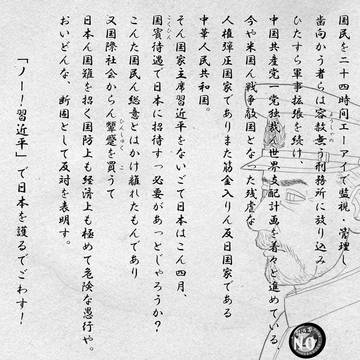 国民を二十四時間エーアイで監視・管理し
歯向かう者らは容赦無う刑務所に放り込み
ひたすら軍事拡張を続け、
中国共産党一党独裁ん世界支配計画を着々と進めている、
今や米国ん戦争敵国となった残虐な
人権弾圧国家でありまた筋金入りん反日国家である
中華人民共和国。
そん国家主席習近平をないごて日本はこん四月、
国賓待遇で日本に招待すっ必要があっとじゃろうか?
こんた国民ん総意とはかけ離れたもんであり
又国際社会からん顰蹙を買うて
日本ん国難を招く国防上も経済上も極めて危険な愚行や。
おいどんな、断固として反対を表明す。
「ノー!習近平」で日本を護るでごわす!
NO